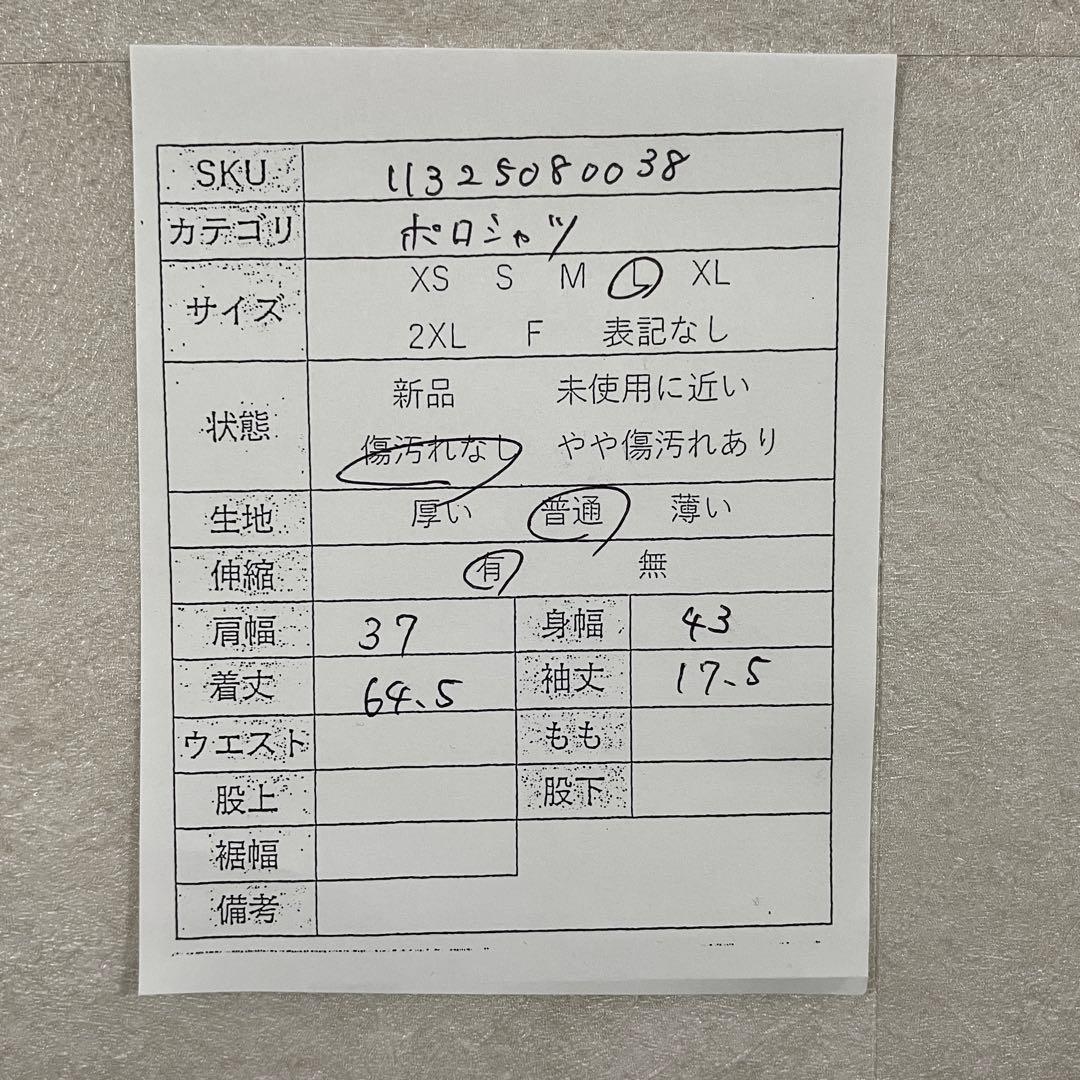 SKU 11325080038
カテゴリ ポロシャツ
サイズ XS S M L XL
2XL F 表記なし
状態 新品 未使用に近い
傷汚れなし やや傷汚れあり
生地 厚い 普通 薄い
伸縮 有 無
肩幅 37 身幅 43
着丈 64.5 袖丈 17.5
ウエスト もも
股上 股下
裾幅
備考